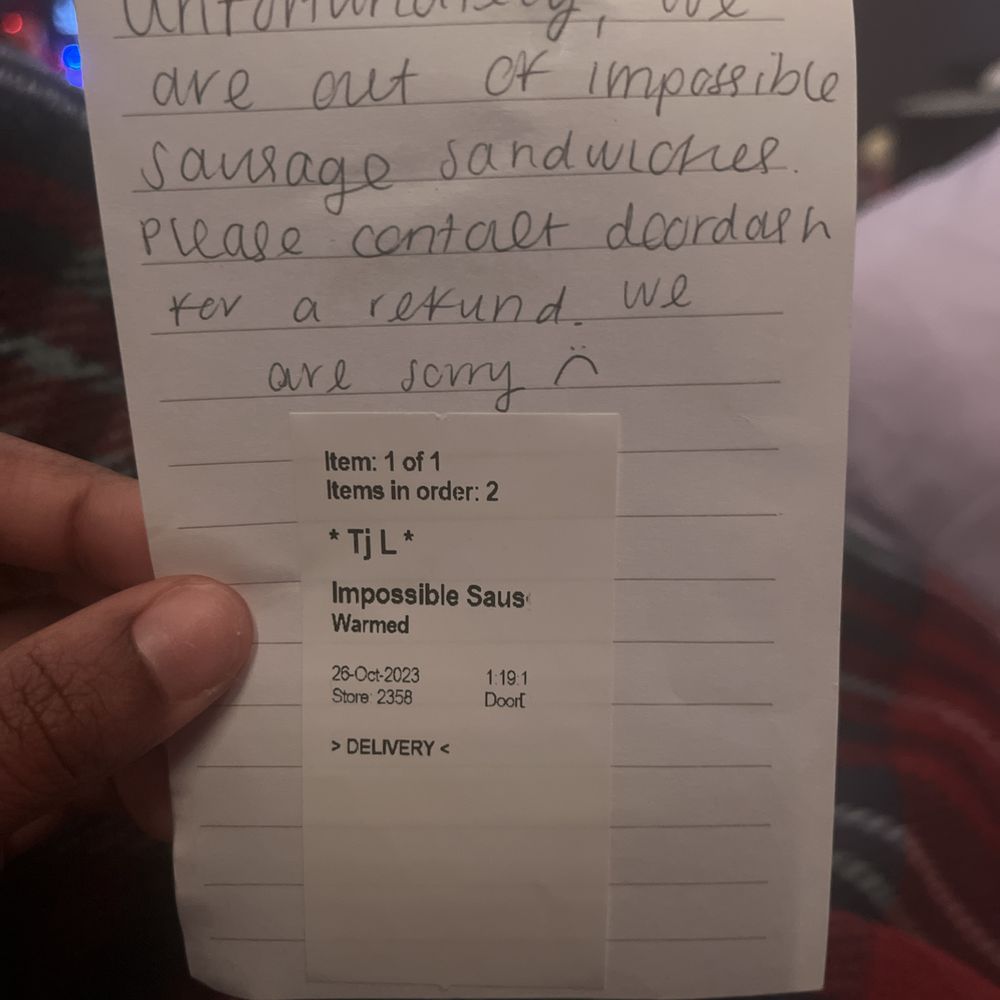 Unfortunately, we
are out of impossible
sausage sandwiches.
Please contact doordash
for a refund. we
are sorry ☹
Item: 1 of 1
Items in order: 2
* Tj L *
Impossible Saus
Warmed
26-Oct-2023 1:19:1
Store: 2358 Door
> DELIVERY <